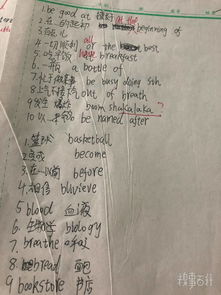 1. be good at 擅长
2. 在的起初 at the beginning of
3. 在
4. 一切顺利 all for the best
5. 吃早饭 have breakfast
6. 一瓶 a bottle of
7. 忙于做某事 be busy doing sth
8. 上气不接下气 out of breath
9. 发生 爆炸 boom shakalaka?
10. 以 命名 be named after
1. 篮球 basketball
2. 变成 become
3. 在…以前 before
4. 相信 bluvieve
5 blood 血液
6. 生物学 biology
7. breathe 呼吸
8. bread 面包
9 bookstore 书店
糗事百科